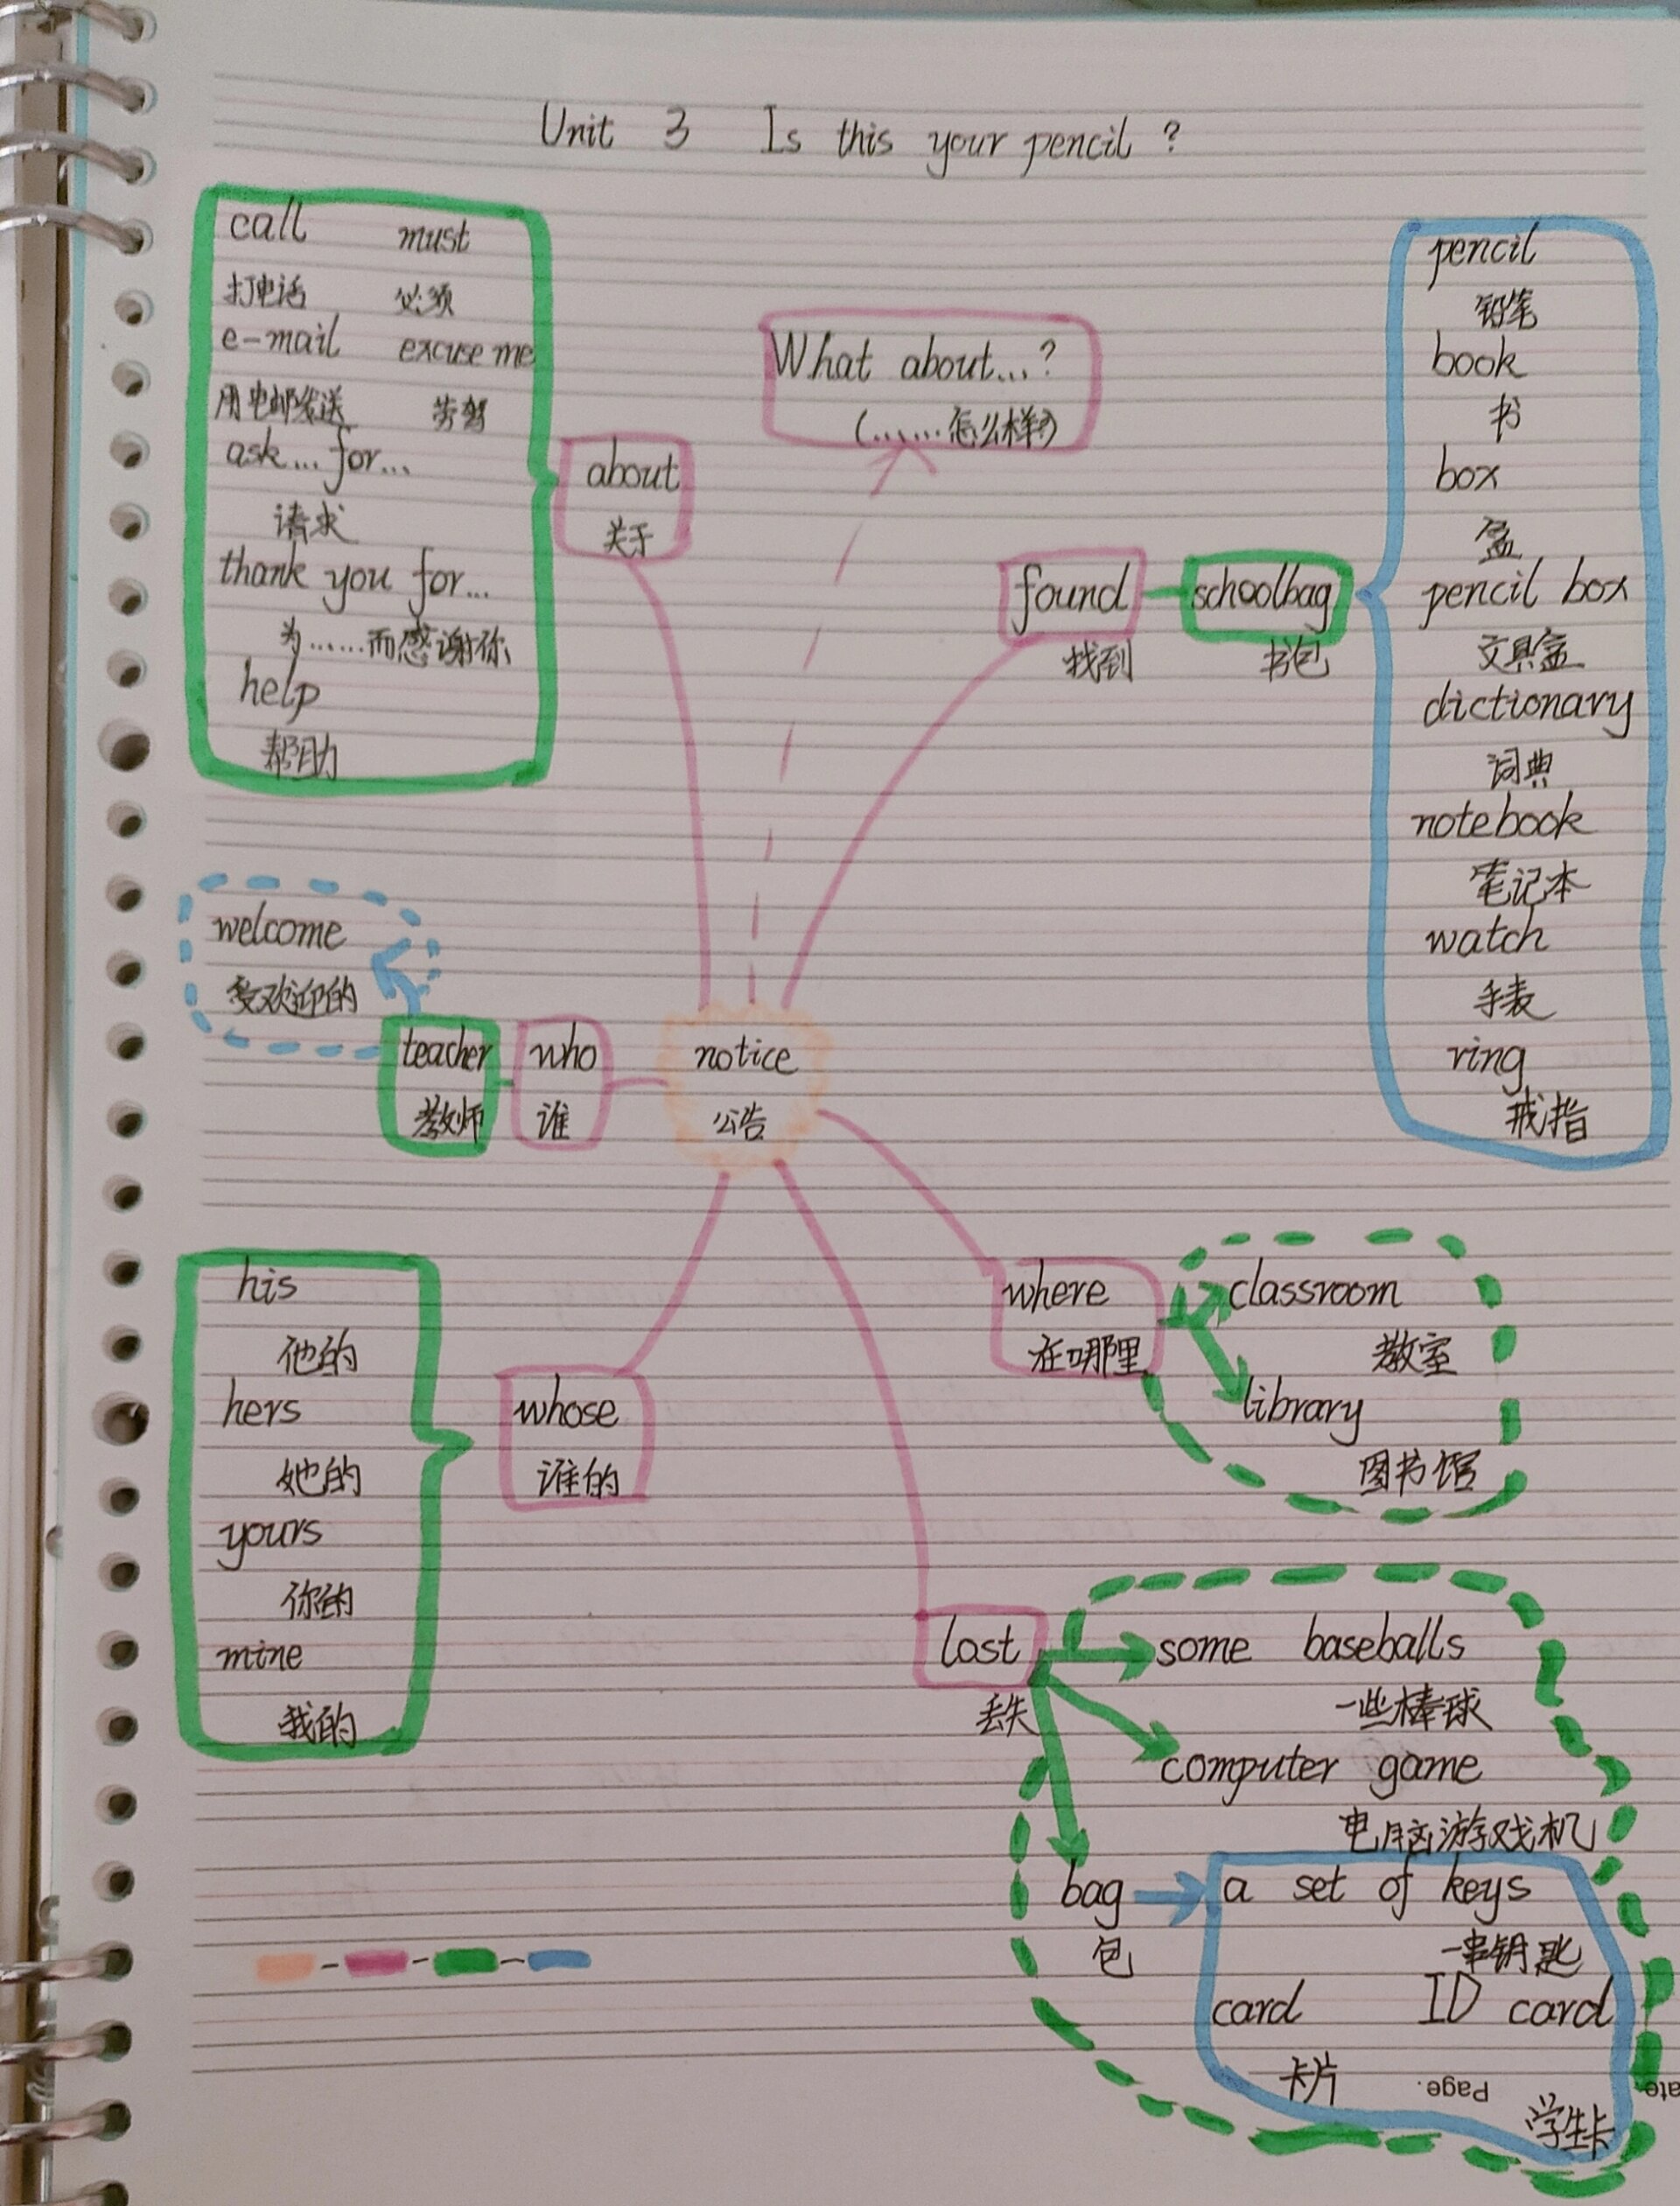 Unit 3 Is this your pencil ?
call must
打电话 必须
e-mail excuse me
用电邮发送 劳驾
ask... for...
请求
thank you for...
为......而感谢你
help
帮助
about
关于
What about...?
(......怎么样?)
found
找到
schoolbag
书包
pencil
铅笔
book
书
box
盒
pencil box
文具盒
dictionary
词典
notebook
笔记本
watch
手表
ring
戒指
welcome
受欢迎的
teacher
教师
who
谁
notice
公告
his
他的
hers
她的
yours
你的
mine
我的
whose
谁的
where
在哪里
classroom
教室
library
图书馆
lost
丢失
some baseballs
一些棒球
computer game
电脑游戏机
bag
包
a set of keys
一串钥匙
card ID card
卡片
学生卡
Page.
ate.